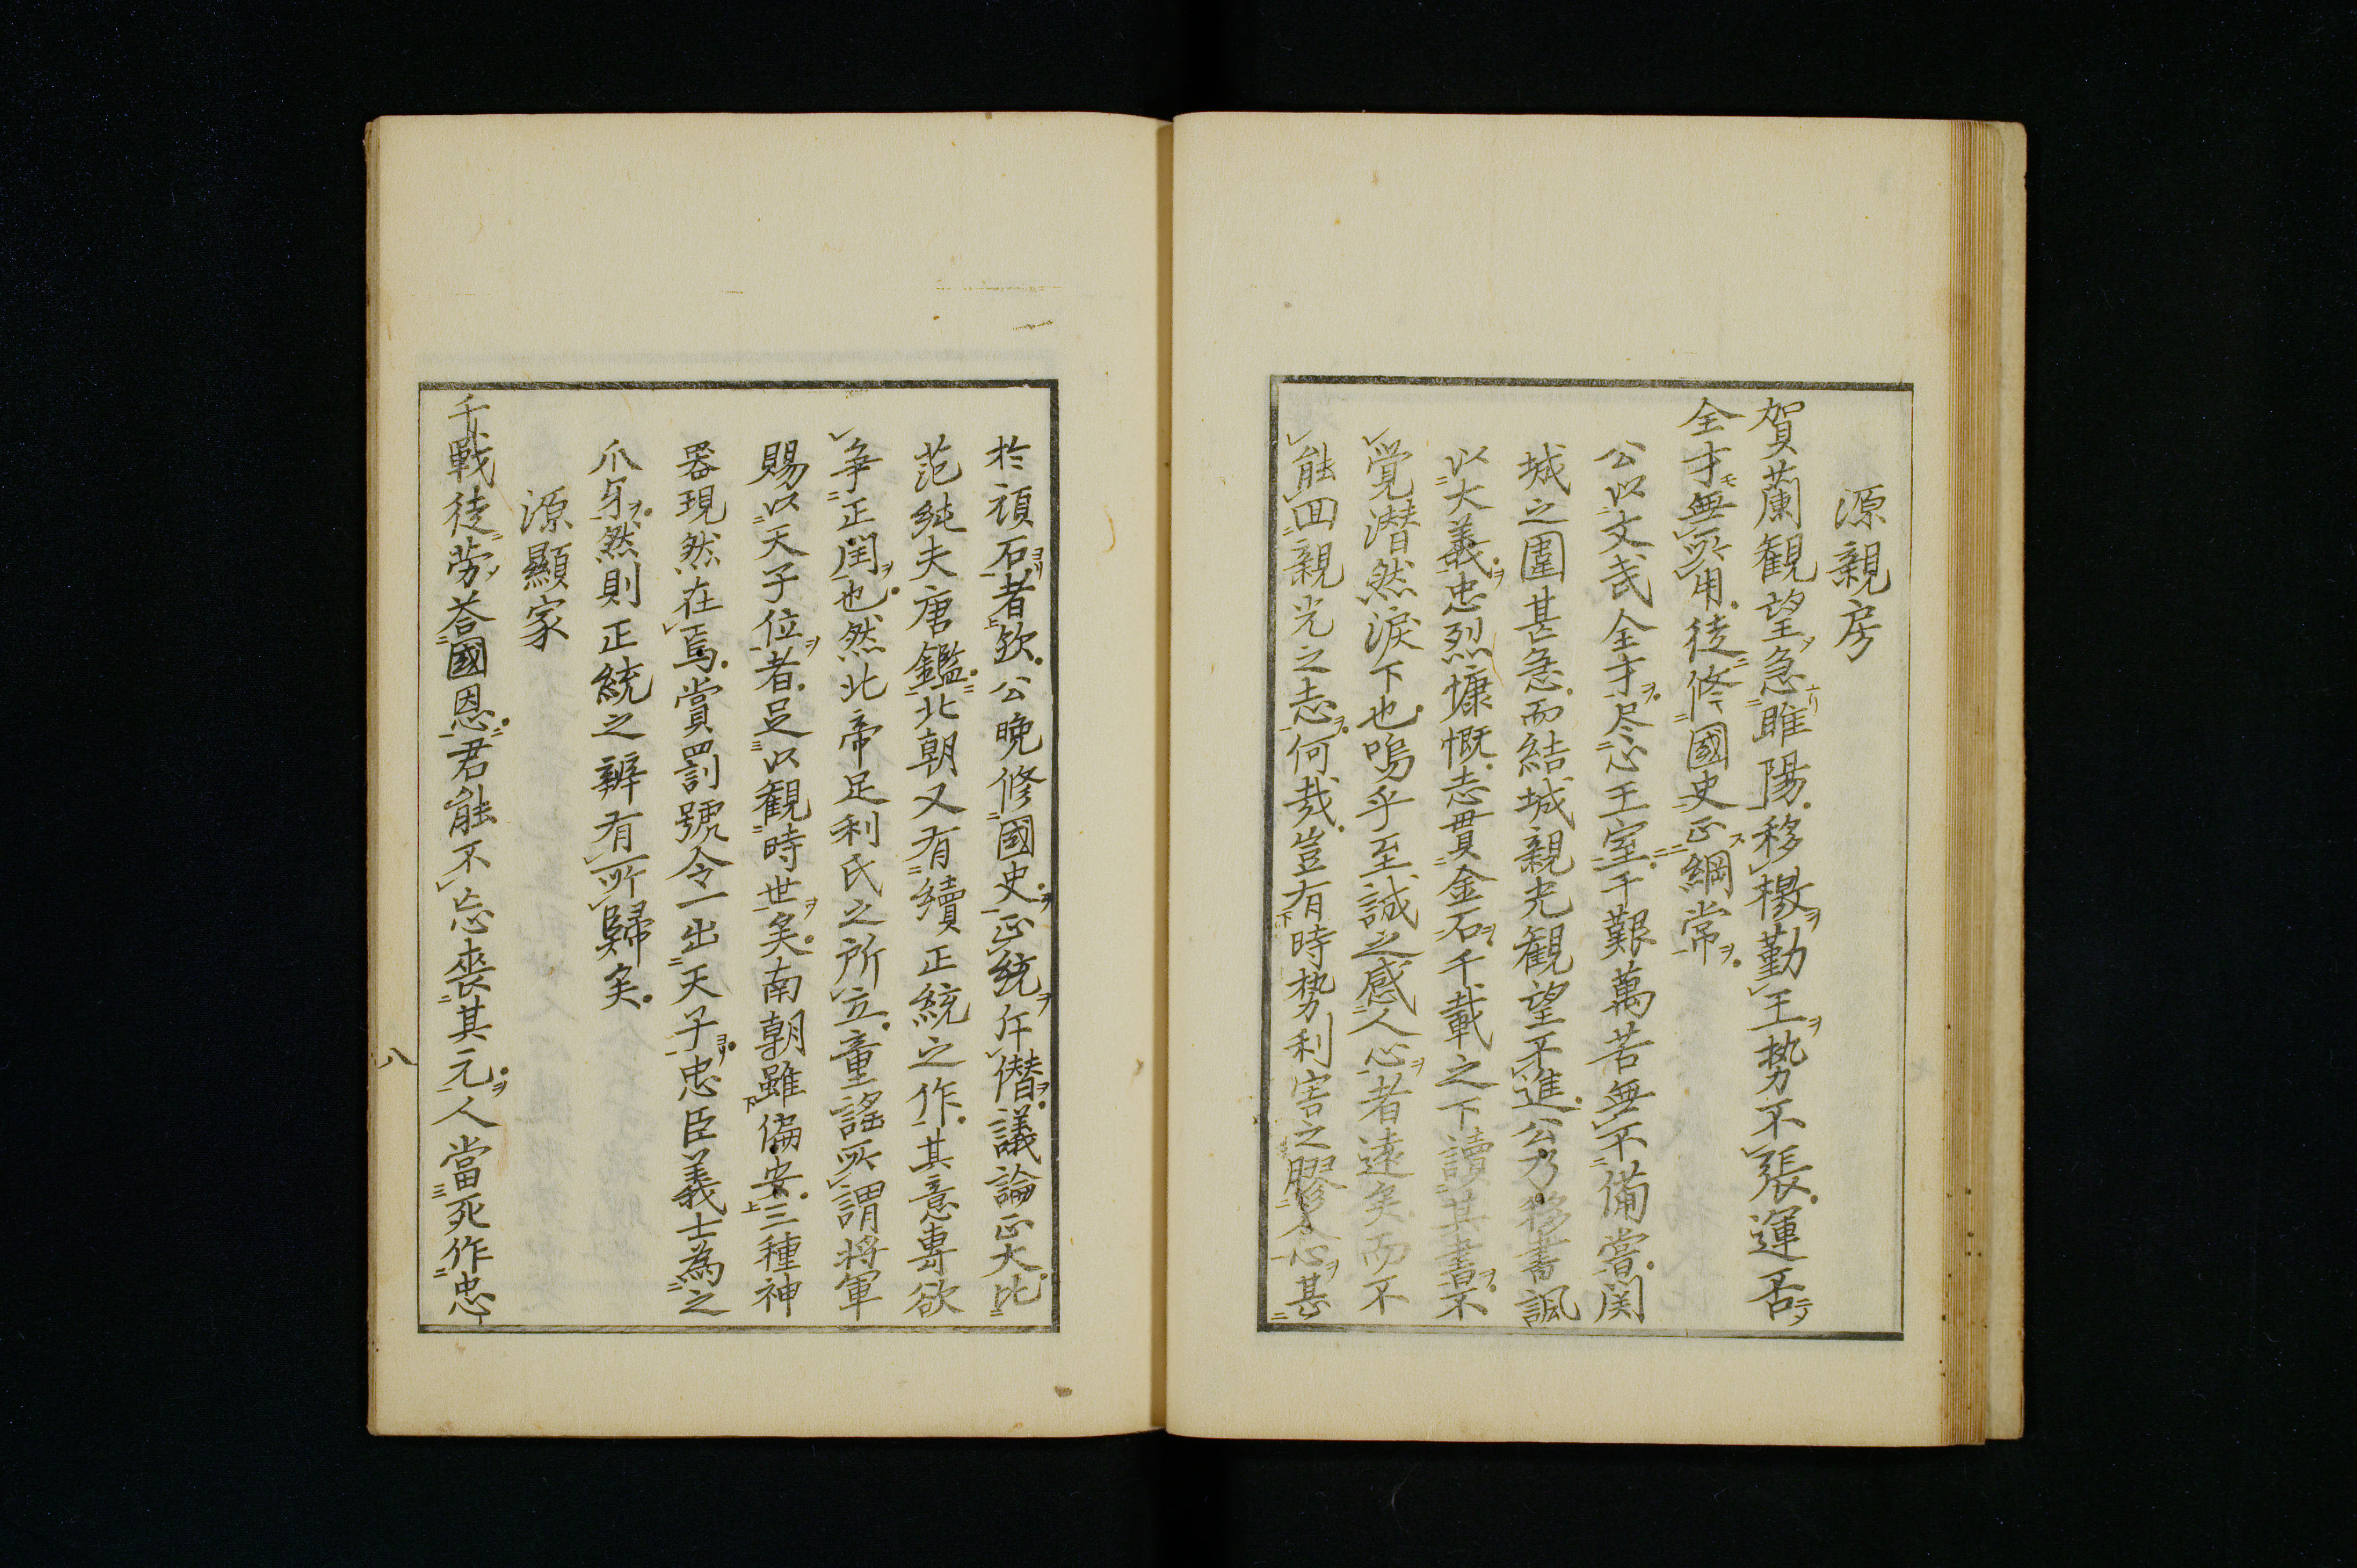 源親房
賀蘭観望急睢陽移檄勤王勢不張運否
全才無所用徒修國史正綱常
公以文武全才尽心王室千艱萬苦無不備嘗関
城之圍甚急而結城親光観望不進公乃移書諷
以大義忠烈慷慨志貫金石千載之下讀其書不
覚潸然淚下也嗚乎至誠之感人心者遠矣而不
能回親光之志何哉豈有時勢利害之膠人心甚
於頑石者欤公晚修國史正統斥僭議論正大比
范純夫唐鑑北朝又有續正統之作其意專欲
争正閏也然北帝足利氏之所立童謠所謂将軍
賜以天子位者足以観時世矣南朝雖偏安三種神
器現然在焉賞罰號令一出天子忠臣義士為之
爪牙然則正統之辨有所歸矣
源顯家
千戰徒労荅國恩君能不忘喪其元人當死作忠
八